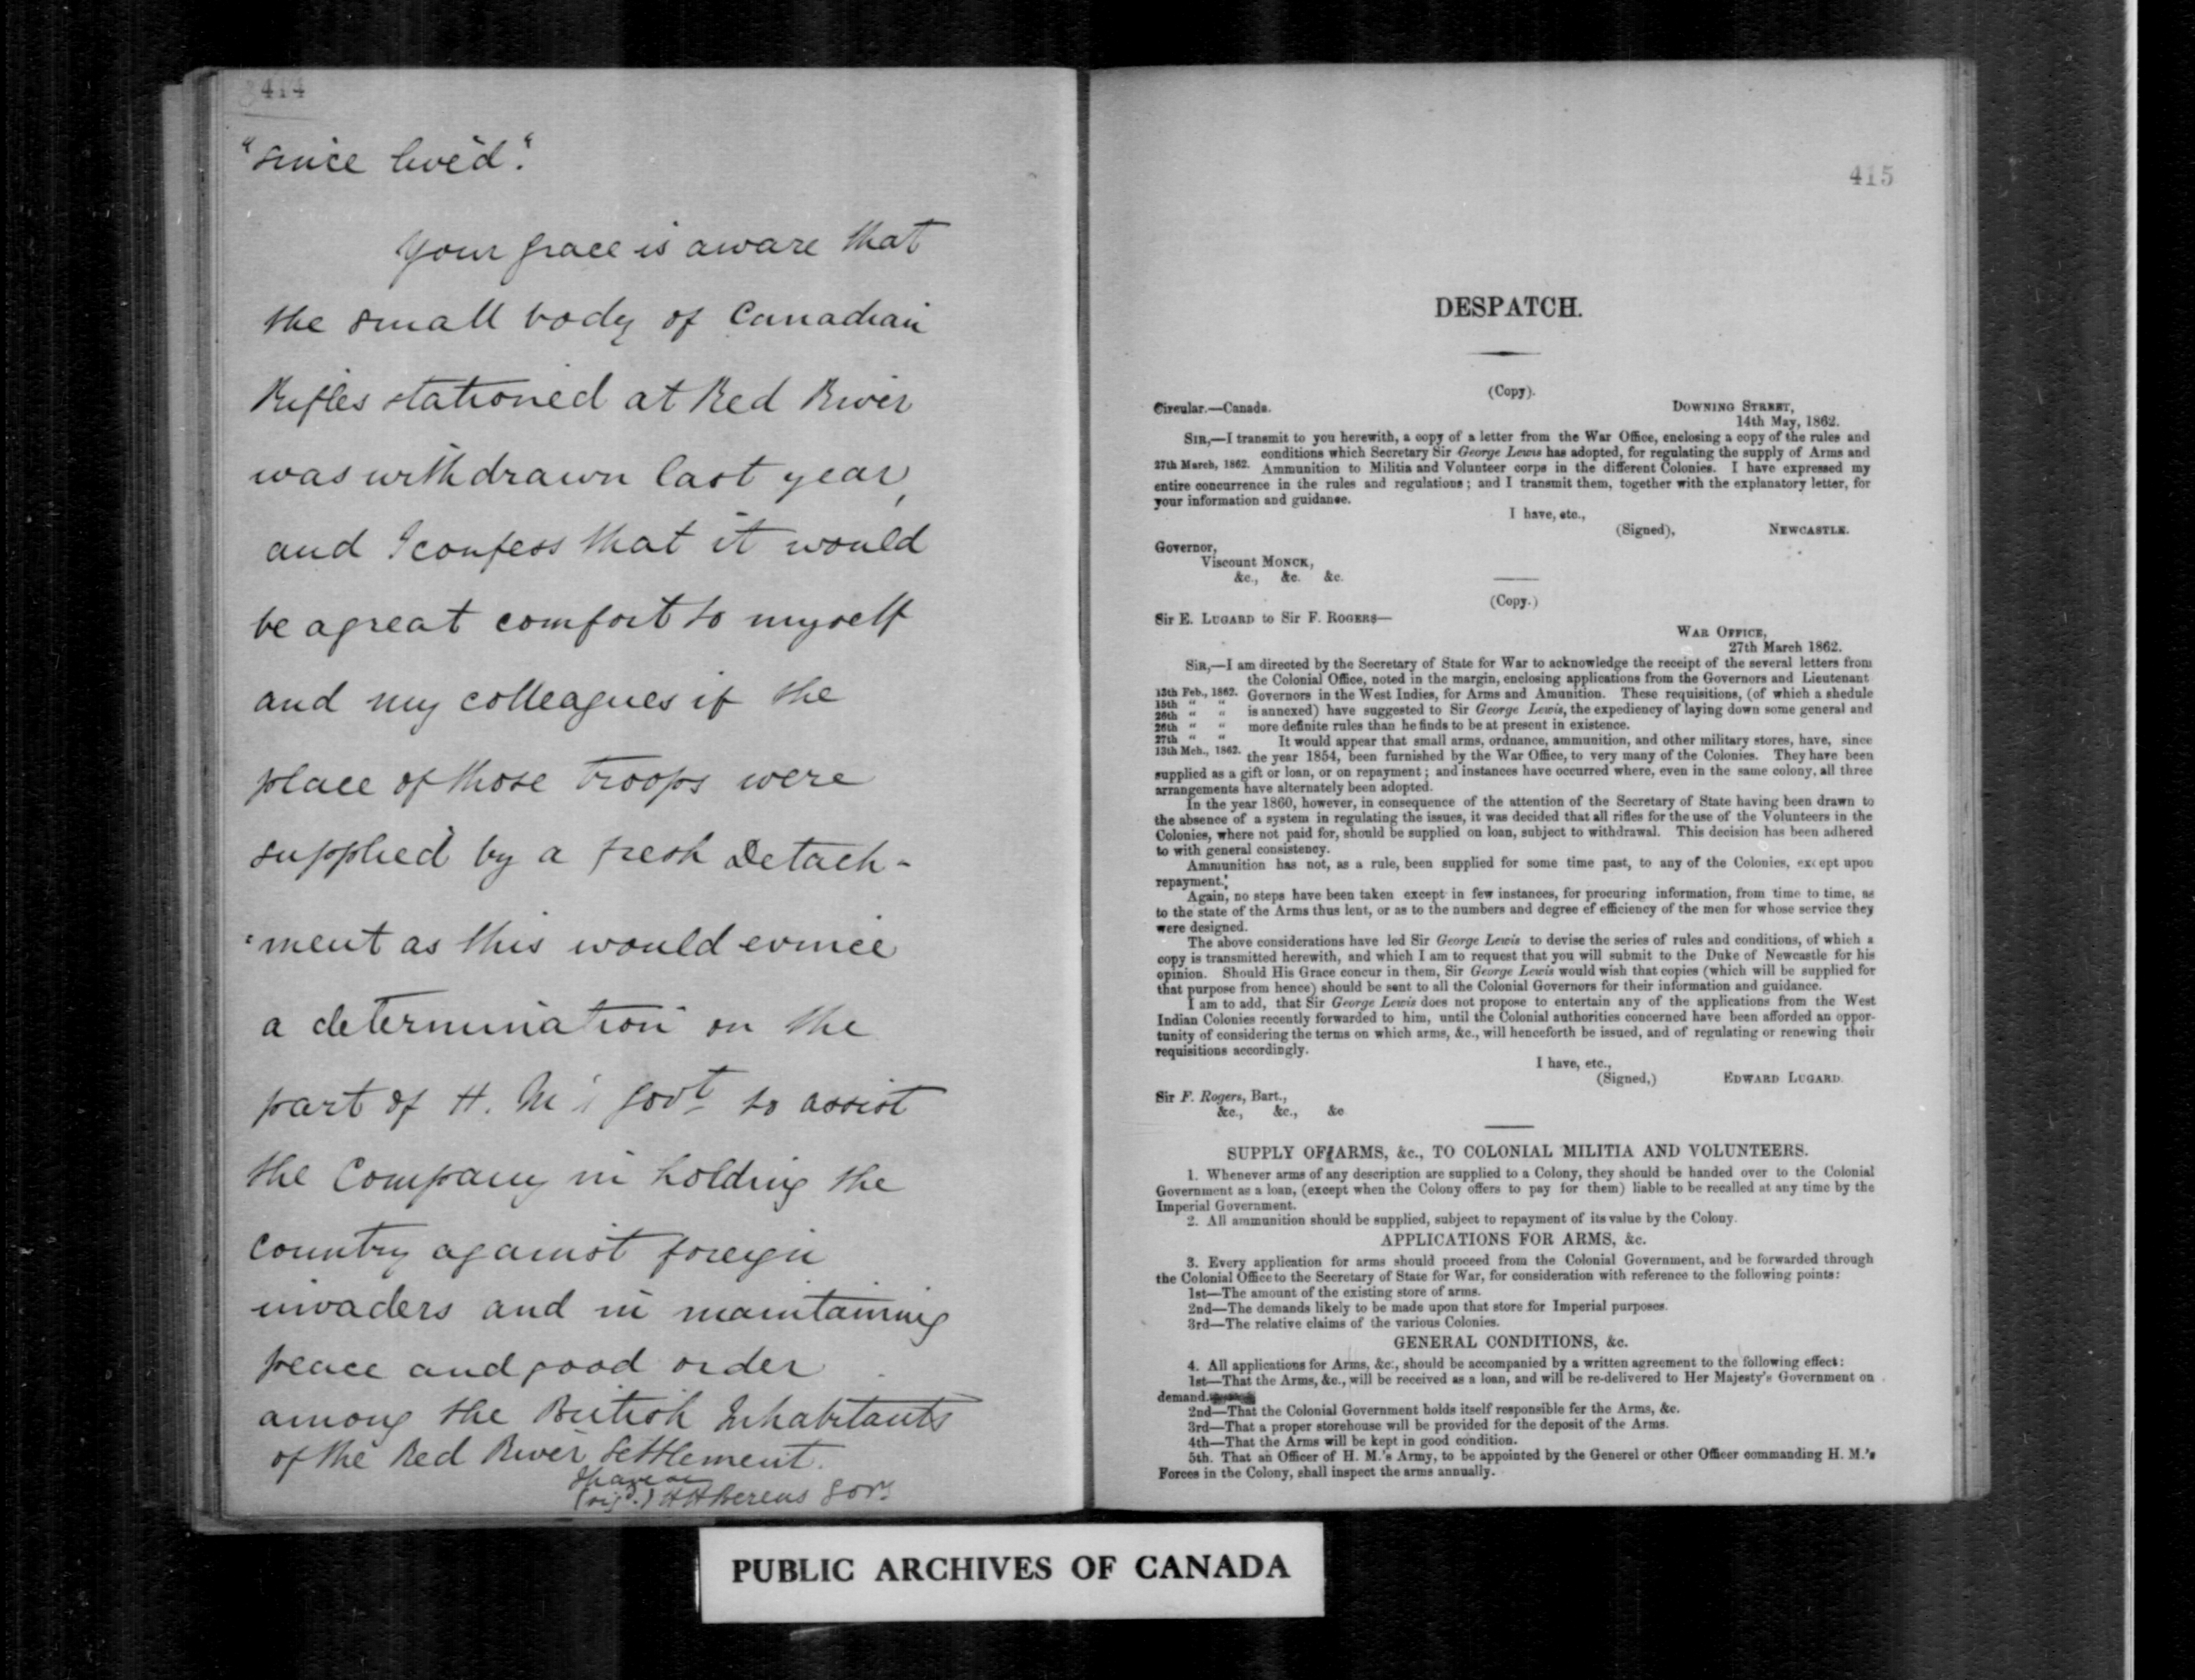 414
"since lived".
Your grace is aware that
the small body of Canadian
Rifles stationed at Red River
was withdrawn last year,
and I confess that it would
be a great comfort to myself
and my colleagues if the
place of those troops were
supplied by a fresh Detach-
"ment as this would evince
a determination on the
part of H. M's Govt. to assist
the Company in holding the
country against foreign
invaders and in maintaining
peace and good order
among the British Inhabitants
of the Red River Settlement.
I have &c
(sigd.) H H Berens Govr.
415
DESPATCH.
(Copy).
Circular.—Canada.
DOWNING STREET,
14th May, 1862.
SIR,—I transmit to you herewith, a copy of a letter from the War Office, enclosing a copy of the rules and
conditions which Secretary Sir George Lewis has adopted, for regulating the supply of Arms and
27th March, 1862. Ammunition to Militia and Volunteer corps in the different Colonies. I have expressed my
entire concurrence in the rules and regulations; and I transmit them, together with the explanatory letter, for
your information and guidance.
I have, etc.,
(Signed), NEWCASTLE.
Governor,
Viscount MONCK,
&c., &c. &c.
(Copy.)
Sir E. LUGARD to Sir F. ROGERS—
WAR OFFICE,
27th March 1862.
SIR,—I am directed by the Secretary of State for War to acknowledge the receipt of the several letters from
the Colonial Office, noted in the margin, enclosing applications from the Governors and Lieutenant
13th Feb., 1862. Governors in the West Indies, for Arms and Amunition. These requisitions, (of which a shedule
15th " "
26th " " is annexed) have suggested to Sir George Lewis, the expediency of laying down some general and
26th " " more definite rules than he finds to be at present in existence.
27th " "
13th Mch., 1862. It would appear that small arms, ordnance, ammunition, and other military stores, have, since
the year 1854, been furnished by the War Office, to very many of the Colonies. They have been
supplied as a gift or loan, or on repayment; and instances have occurred where, even in the same colony, all three
arrangements have alternately been adopted.
In the year 1860, however, in consequence of the attention of the Secretary of State having been drawn to
the absence of a system in regulating the issues, it was decided that all rifles for the use of the Volunteers in the
Colonies, where not paid for, should be supplied on loan, subject to withdrawal. This decision has been adhered
to with general consistency.
Ammunition has not, as a rule, been supplied for some time past, to any of the Colonies, except upon
repayment.
Again, no steps have been taken except in few instances, for procuring information, from time to time, as
to the state of the Arms thus lent, or as to the numbers and degree ef efficiency of the men for whose service they
were designed.
The above considerations have led Sir George Lewis to devise the series of rules and conditions, of which a
copy is transmitted herewith, and which I am to request that you will submit to the Duke of Newcastle for his
opinion. Should His Grace concur in them, Sir George Lewis would wish that copies (which will be supplied for
that purpose from hence) should be sent to all the Colonial Governors for their information and guidance.
I am to add, that Sir George Lewis does not propose to entertain any of the applications from the West
Indian Colonies recently forwarded to him, until the Colonial authorities concerned have been afforded an oppor-
tunity of considering the terms on which arms, &c., will henceforth be issued, and of regulating or renewing their
requisitions accordingly.
I have, etc.,
(Signed,) EDWARD LUGARD.
Sir F. Rogers, Bart.,
&c., &c., &c
SUPPLY OF ARMS, &c., TO COLONIAL MILITIA AND VOLUNTEERS.
1. Whenever arms of any description are supplied to a Colony, they should be handed over to the Colonial
Government as a loan, (except when the Colony offers to pay for them) liable to be recalled at any time by the
Imperial Government.
2. All ammunition should be supplied, subject to repayment of its value by the Colony.
APPLICATIONS FOR ARMS, &c.
3. Every application for arms should proceed from the Colonial Government, and be forwarded through
the Colonial Office to the Secretary of State for War, for consideration with reference to the following points:
1st—The amount of the existing store of arms.
2nd—The demands likely to be made upon that store for Imperial purposes.
3rd—The relative claims of the various Colonies.
GENERAL CONDITIONS, &c.
4. All applications for Arms, &c., should be accompanied by a written agreement to the following effect:
1st—That the Arms, &c., will be received as a loan, and will be re-delivered to Her Majesty's Government on
demand.
2nd—That the Colonial Government holds itself responsible fer the Arms, &c.
3rd—That a proper storehouse will be provided for the deposit of the Arms.
4th—That the Arms will be kept in good condition.
5th. That an Officer of H. M.'s Army, to be appointed by the Generel or other Officer commanding H. M.'s
Forces in the Colony, shall inspect the arms annually.
PUBLIC ARCHIVES OF CANADA